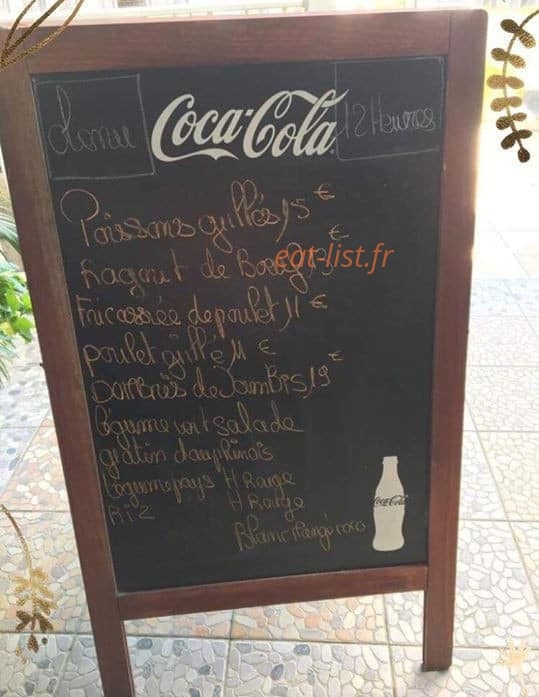 Menu
Coca-Cola
12 Heures
Poissons grillés 15 €
Ragout de €
eat-list.fr
Fricassée de poulet 11 €
poulet grillé 11 €
de 19 €
légume vert salade
gratin dauphinois
légume pays H Rouge
Riz H Rouge
Blanc Mangé coco
Coca-Cola